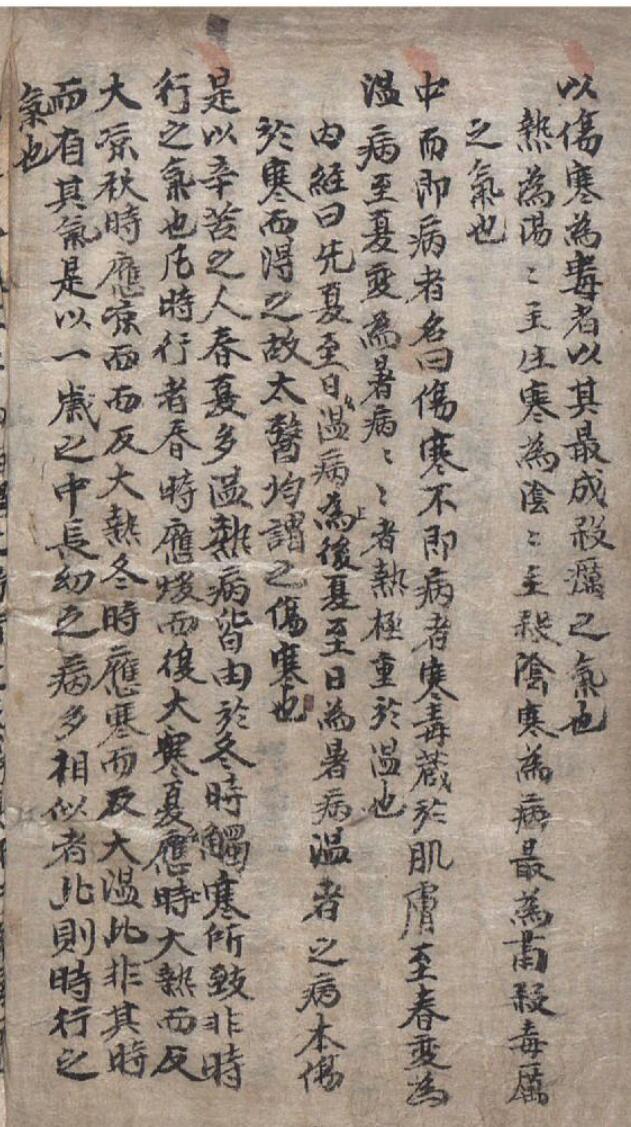 以傷寒為毒者以其最成殺癘之氣也
熱為陽〻主生寒為陰〻主殺陰寒為病最為肅殺毒厲
之氣也
中而即病者名曰傷寒不即病者寒毒蔵於肌膚至春変為
温病至夏変為暑病〻〻者熱極重於温也
内経曰先夏至日温病為後夏至日為暑病温者之病本傷
於寒而得之故太醫均謂之傷寒也
是以辛苦之人春夏多温熱病皆由於冬時觸寒所致非時
行之氣也凡時行者春時應煖而復大寒夏應時大熱而反
大凉秋時應凉而而反大熱冬時應寒而反大温此非其時
而有其氣是以一歳之中長幼之病多相似者此則時行之
氣也